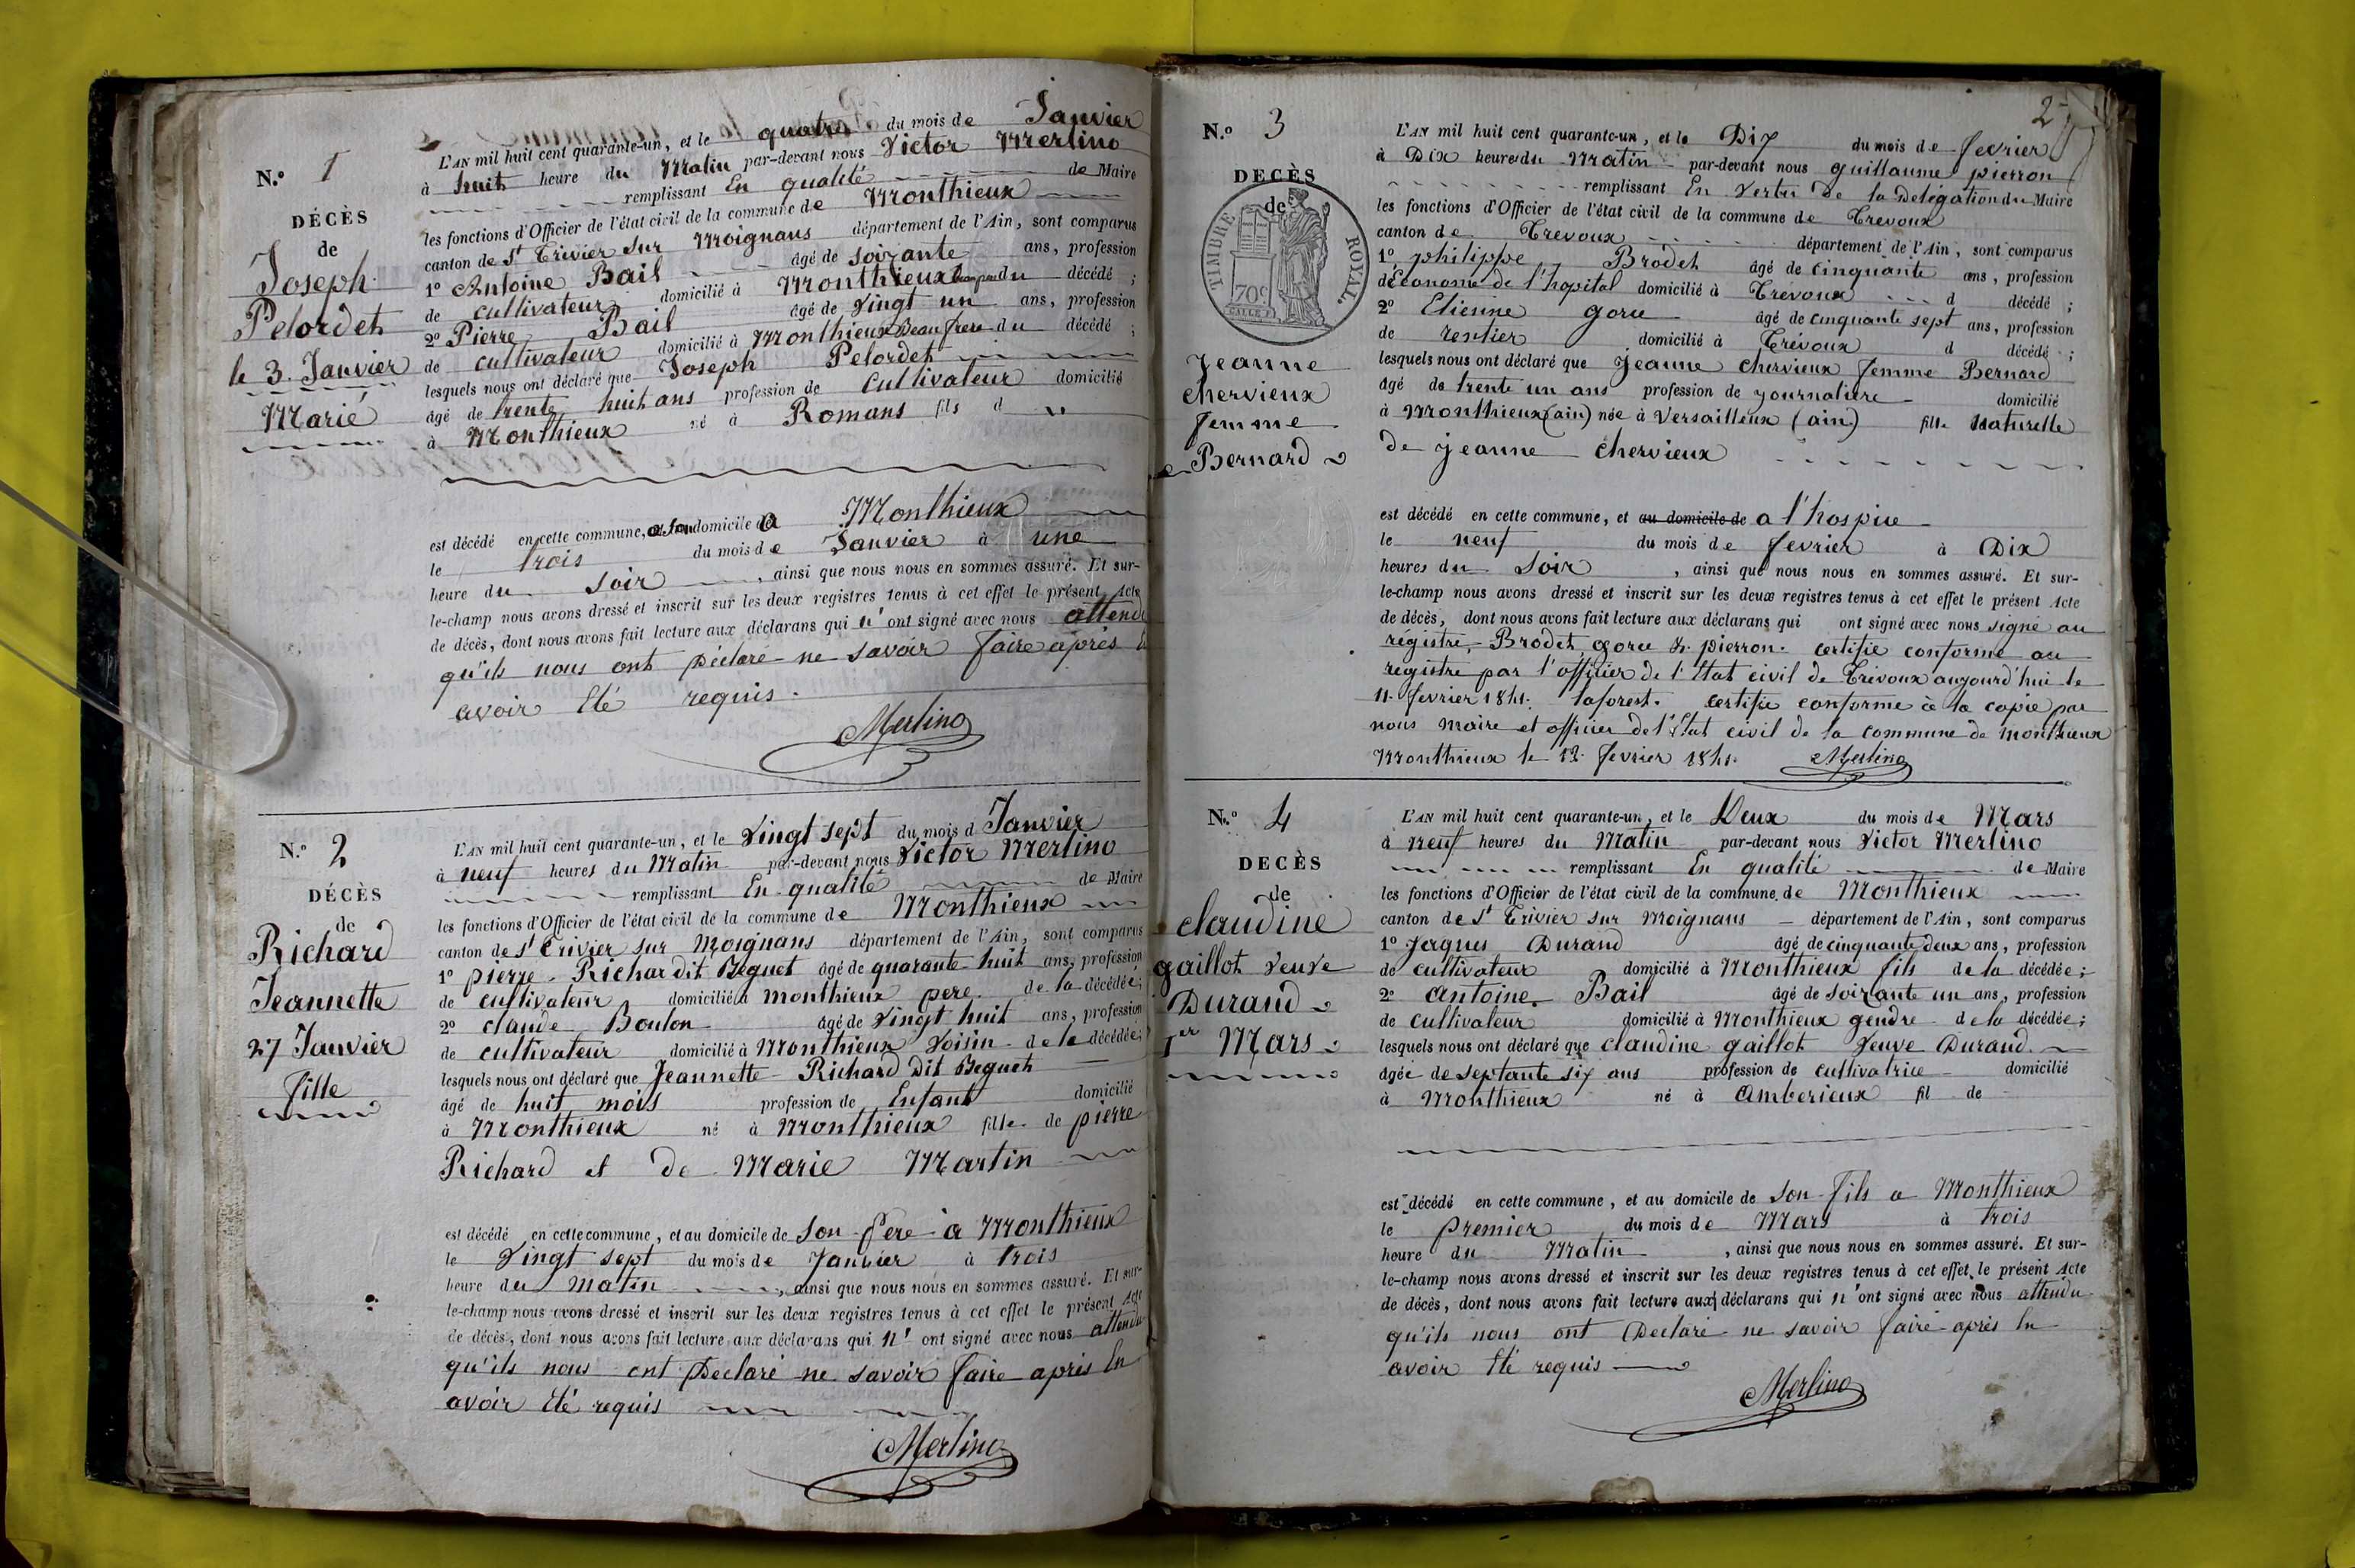 N.o 1
DÉCÈS
de
Joseph
Pelordet
le 3. Janvier
Marié
L'AN mil huit cent quarante-un, et le quatre du mois de Janvier
à huit heure du Matin par-devant nous Victor Merlino
remplissant En qualité de Maire
les fonctions d'Officier de l'état civil de la commune de Monthieux
canton de St Trivier sur Moignans département de l'Ain, sont comparus
1o Antoine Bail âgé de soixante ans, profession
de cultivateur domicilié à Monthieux du décédé ;
2o Pierre Bail âgé de vingt un ans, profession
de cultivateur domicilié à Monthieux Beau frere du décédé ;
lesquels nous ont déclaré que Joseph Pelordet
âgé de trente huit ans profession de cultivateur domicilié
à Monthieux né à Romans fils d
est décédé en cette commune, domicile Monthieux
le trois du mois de Janvier à une
heure du soir, ainsi que nous nous en sommes assuré. Et sur-
le-champ nous avons dressé et inscrit sur les deux registres tenus à cet effet le présent Acte
de décès, dont nous avons fait lecture aux déclarans qui n'ont signé avec nous attendu
qu'ils nous ont Déclaré ne savoir faire après
avoir Eté requis.
Merlino
N.o 2
DÉCÈS
de
Richard
Jeannette
27 Janvier
fille
L'AN mil huit cent quarante-un, et le vingt sept du mois d Janvier
à neuf heures du Matin par-devant nous Victor Merlino
remplissant En qualité de Maire
les fonctions d'Officier de l'état civil de la commune de Monthieux
canton de St Trivier sur Moignans département de l'Ain, sont comparus
1o pierre Richar dit Beguet âgé de quarante huit ans, profession
de cultivateur domicilié à monthieux pere de la décédée;
2o claude Boulon âgé de vingt huit ans, profession
de cultivateur domicilié à Monthieux Voisin de la décédée;
lesquels nous ont déclaré que Jeannette Richard Dit Beguet
âgé de huit mois profession de Enfant domicilié
à Monthieux né à Monthieux fille de pierre
Richard et de Marie Martin
est décédé en cette commune, et au domicile de son Pere à Monthieux
le vingt sept du mois de Janvier à trois
heure du matin, ainsi que nous nous en sommes assuré. Et sur-
le-champ nous avons dressé et inscrit sur les deux registres tenus à cet effet le présent Acte
de décès, dont nous avons fait lecture aux déclarans qui n'ont signé avec nous attendu
qu'ils nous ont Declaré ne savoir faire après En
avoir Eté requis
Merlino
2
N.o 3
DECÈS
de
TIMBRE ROYAL.
70c
Jeanne
chervieux
femme
Bernard
L'AN mil huit cent quarante-un, et le Dix du mois de fevrier
à Dix heures du Matin par-devant nous guillaume pierron
remplissant En vertu de la Délégation du Maire
les fonctions d'Officier de l'état civil de la commune de Trevoux
canton de Trevoux département de l'Ain, sont comparus
1o philippe Brodet âgé de cinquante ans, profession
d'économe de l'hopital domicilié à Trévoux d décédé ;
2o Etienne goru âgé de cinquante sept ans, profession
de rentier domicilié à Trévoux d décédé ;
lesquels nous ont déclaré que jeanne chervieux femme Bernard
âgé de trente un ans profession de journalière domicilié
à Monthieux (ain) née à Versailleux (ain) fille Naturelle
de jeanne chervieux
est décédé en cette commune, et au domicile de a l'hospice
le neuf du mois de fevrier à Dix
heures du soir, ainsi que nous nous en sommes assuré. Et sur-
le-champ nous avons dressé et inscrit sur les deux registres tenus à cet effet le présent Acte
de décès, dont nous avons fait lecture aux déclarans qui ont signé avec nous signé au
registre, Brodet, goru & pierron. certifié conforme au
registre par l'officier de l'Etat civil de Trevoux aujourd'hui le
11. fevrier 1841. laforest. certifié conforme à la copie par
nous maire et officier de l'Etat civil de la commune de Monthieux
Monthieux le 12 fevrier 1841. Merlino
N.o 4
DECÈS
de
claudine
gaillot Veuve
Durand
1er Mars
L'AN mil huit cent quarante-un, et le Deux du mois de Mars
à neuf heures du Matin par-devant nous Victor Merlino
remplissant En qualité de Maire
les fonctions d'Officier de l'état civil de la commune de Monthieux
canton de St Trivier sur Moignans département de l'Ain, sont comparus
1o Jaques Durand âgé de cinquante deux ans, profession
de cultivateur domicilié à Monthieux fils de la décédée;
2o Antoine Bail âgé de soixante un ans, profession
de cultivateur domicilié à Monthieux gendre de la décédée;
lesquels nous ont déclaré que claudine gaillot Veuve Durand.
âgée de septante six ans profession de cultivatrice domicilié
à Monthieux né à Amberieux fil de
est décédé en cette commune, et au domicile de son fils a Monthieux
le Premier du mois de Mars à trois
heure du Matin, ainsi que nous nous en sommes assuré. Et sur-
le-champ nous avons dressé et inscrit sur les deux registres tenus à cet effet le présent Acte
de décès, dont nous avons fait lecture aux déclarans qui n'ont signé avec nous attendu
qu'ils nous ont Declaré ne savoir faire après En
avoir Eté requis
Merlino